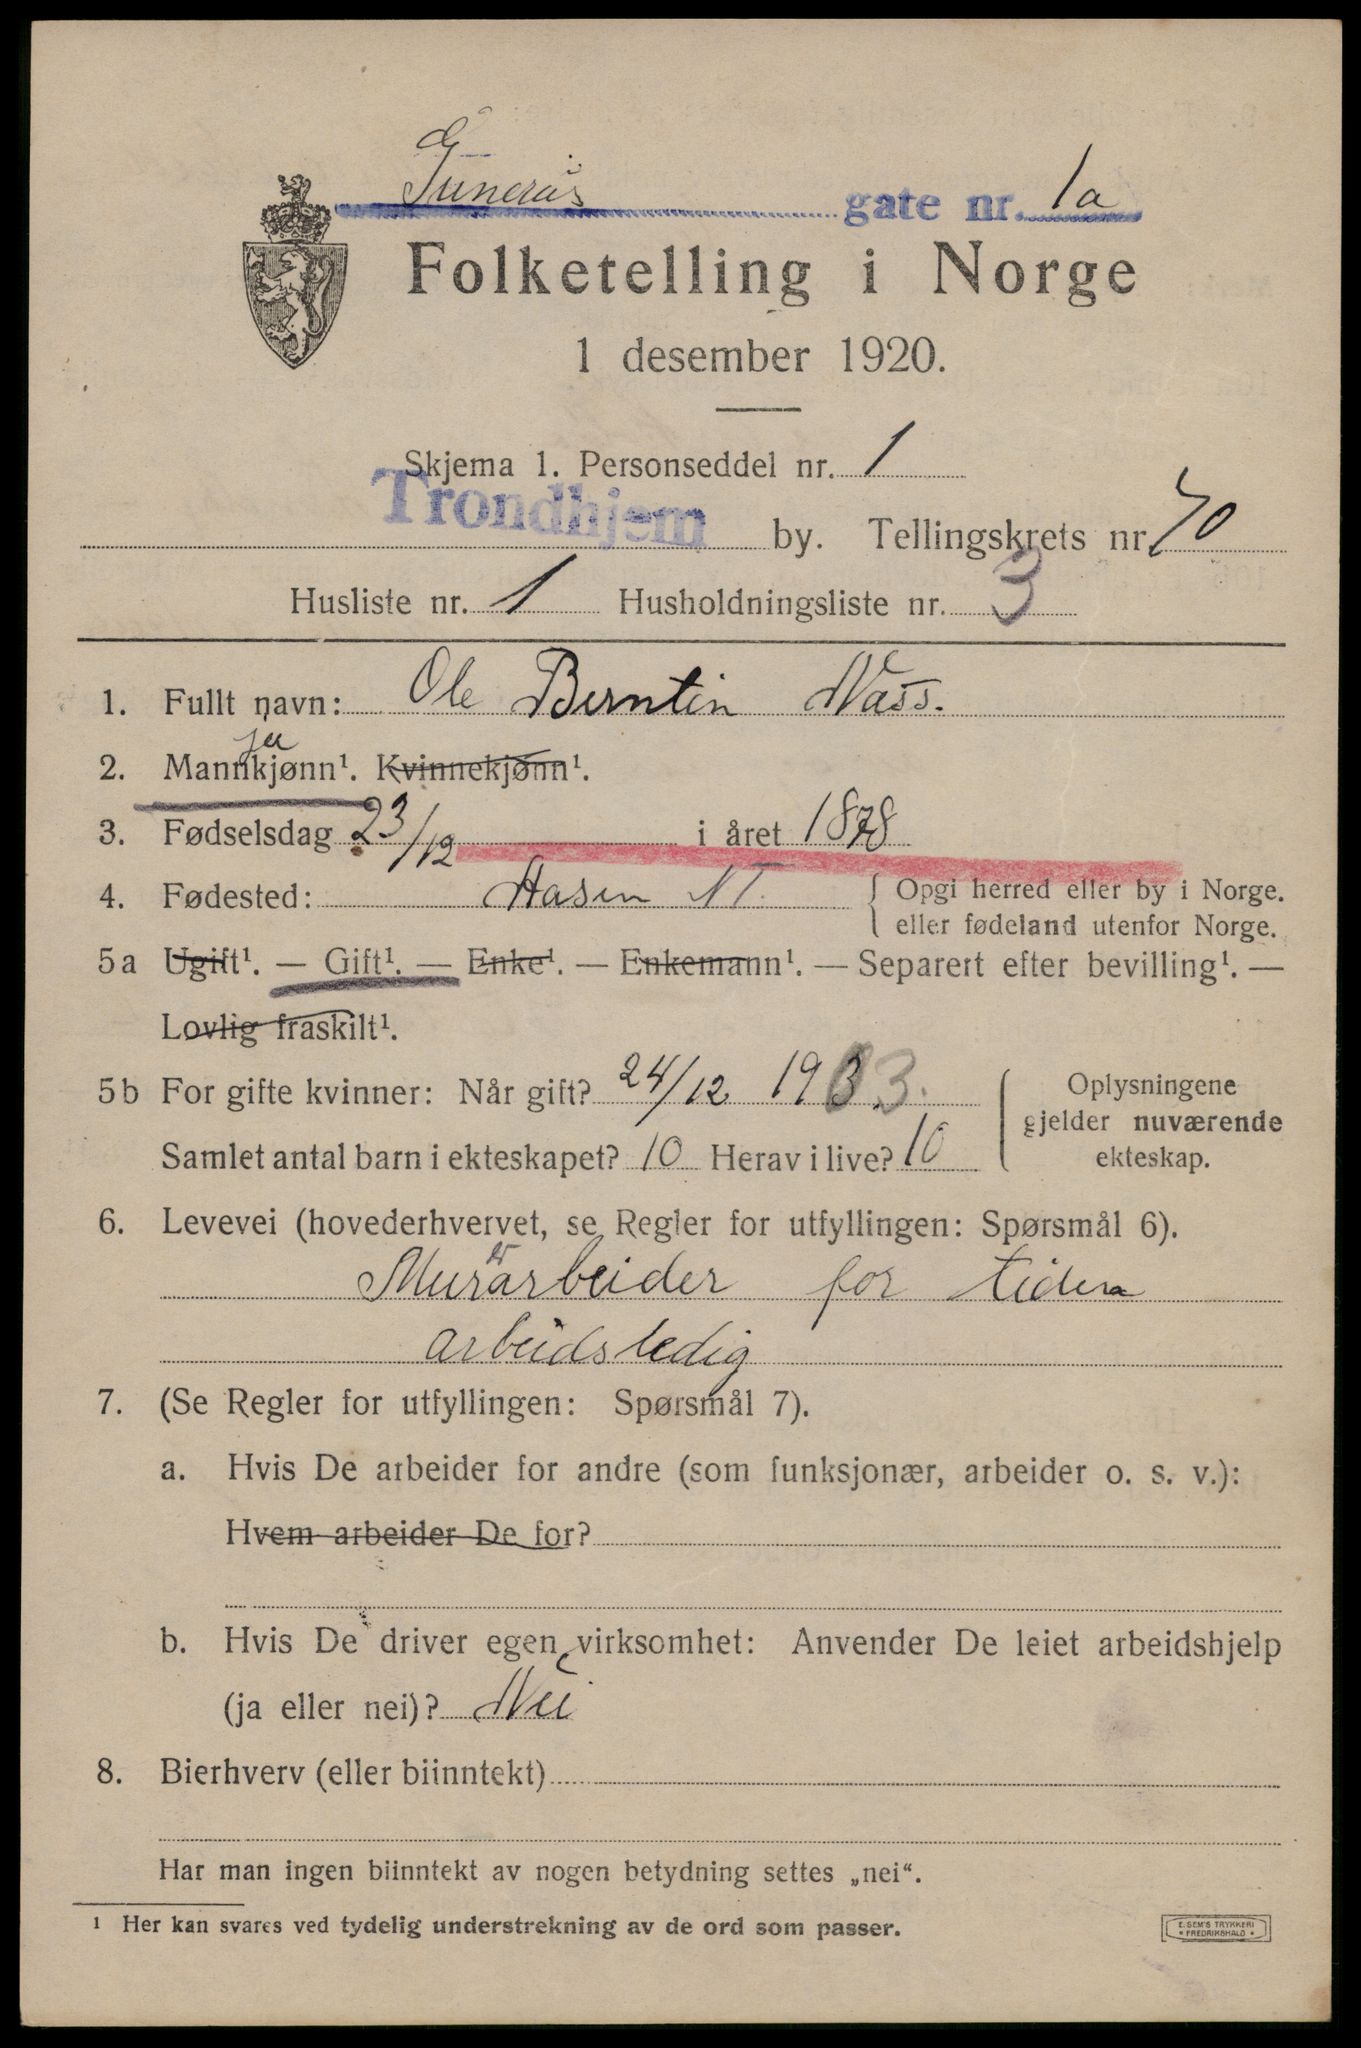 Gunerus gate nr. 1a
Folketelling i Norge
1 desember 1920.
Skjema 1. Personseddel nr. 1
Trondhjem by. Tellingskrets nr. 70
Husliste nr. 1 Husholdningsliste nr. 3
1. Fullt navn: Ole Berntin Næss.
ja
2. Mannkjønn¹. Kvinnekjønn¹.
3. Fødselsdag 23/12 i året 1878
4. Fødested: Aasen N T. { Opgi herred eller by i Norge.
eller fødeland utenfor Norge.
5a Ugift¹. — Gift¹. — Enke¹. — Enkemann¹. — Separert efter bevilling¹. —
Lovlig fraskilt¹.
5b For gifte kvinner: Når gift? 24/12 1903. Oplysningene
gjelder nuværende
Samlet antal barn i ekteskapet? 10 Herav i live? 10 ekteskap.
6. Levevei (hovederhvervet, se Regler for utfyllingen: Spørsmål 6).
Murarbeider for tiden
arbeidsledig
7. (Se Regler for utfyllingen: Spørsmål 7).
a. Hvis De arbeider for andre (som funksjonær, arbeider o. s. v.):
Hvem arbeider De for?
b. Hvis De driver egen virksomhet: Anvender De leiet arbeidshjelp
(ja eller nei)? Nei
8. Bierhverv (eller biinntekt)
Har man ingen biinntekt av nogen betydning settes „nei“.
¹ Her kan svares ved tydelig understrekning av de ord som passer.
E. SEM'S TRYKKERI
* FREDRIKSHALD *